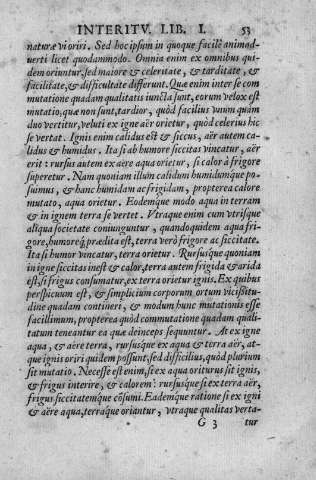 INTERITV. LIB. I. 53
naturæ vi oriri. Sed hoc ipsum in quoque facilè animad-
uerti licet quodammodo. Omnia enim ex omnibus qui-
dem oriuntur, sed maiore & celeritate, & tarditate, &
facilitate, & difficultate differunt. Quæ enim inter se com
mutatione quadam qualitatis iuncta sunt, eorum velox est
mutatio, quæ non sunt, tardior, quòd facilius vnum quàm
duo vertitur, veluti ex igne aër orietur, quòd celerius hic
se vertat. Ignis enim calidus est & siccus, aër autem ca-
lidus & humidus. Ita si ab humore siccitas vincatur, aër
erit: rursus autem ex aere aqua orietur, si calor à frigore
superetur. Nam quoniam illum calidum humidumque po-
suimus, & hanc humidam ac frigidam, propterea calore
mutato, aqua orietur. Eodemque modo aqua in terram
& in ignem terra se vertet. Vtraque enim cum vtrisque
aliqua societate coniunguntur, quandoquidem aqua fri-
gore, humoreq́; prædita est, terra verò frigore ac siccitate.
Ita si humor vincatur, terra orietur. Rursusque quoniam
in igne siccitas inest & calor, terra autem frigida & arida
est, si frigus consumatur, ex terra orietur ignis. Ex quibus
perspicuum est, & simplicium corporum ortum vicissitu-
dine quadam contineri, & modum hunc mutationis esse
facillimum, propterea quòd commutatione quadam quali-
tatum teneantur ea quæ deinceps sequuntur. At ex igne
aqua, & aëre terra, rursusque ex aqua & terra aër, at-
que ignis oriri quidem possunt, sed difficilius, quòd plurium
sit mutatio. Necesse est enim, si ex aqua oriturus sit ignis,
& frigus interire, & calorem: rursusque si ex terra aër,
frigus siccitatemque cōsumi. Eademque ratione si ex igni
& aëre aqua, terraque oriantur, vtraque qualitas verta-
G 3 tur